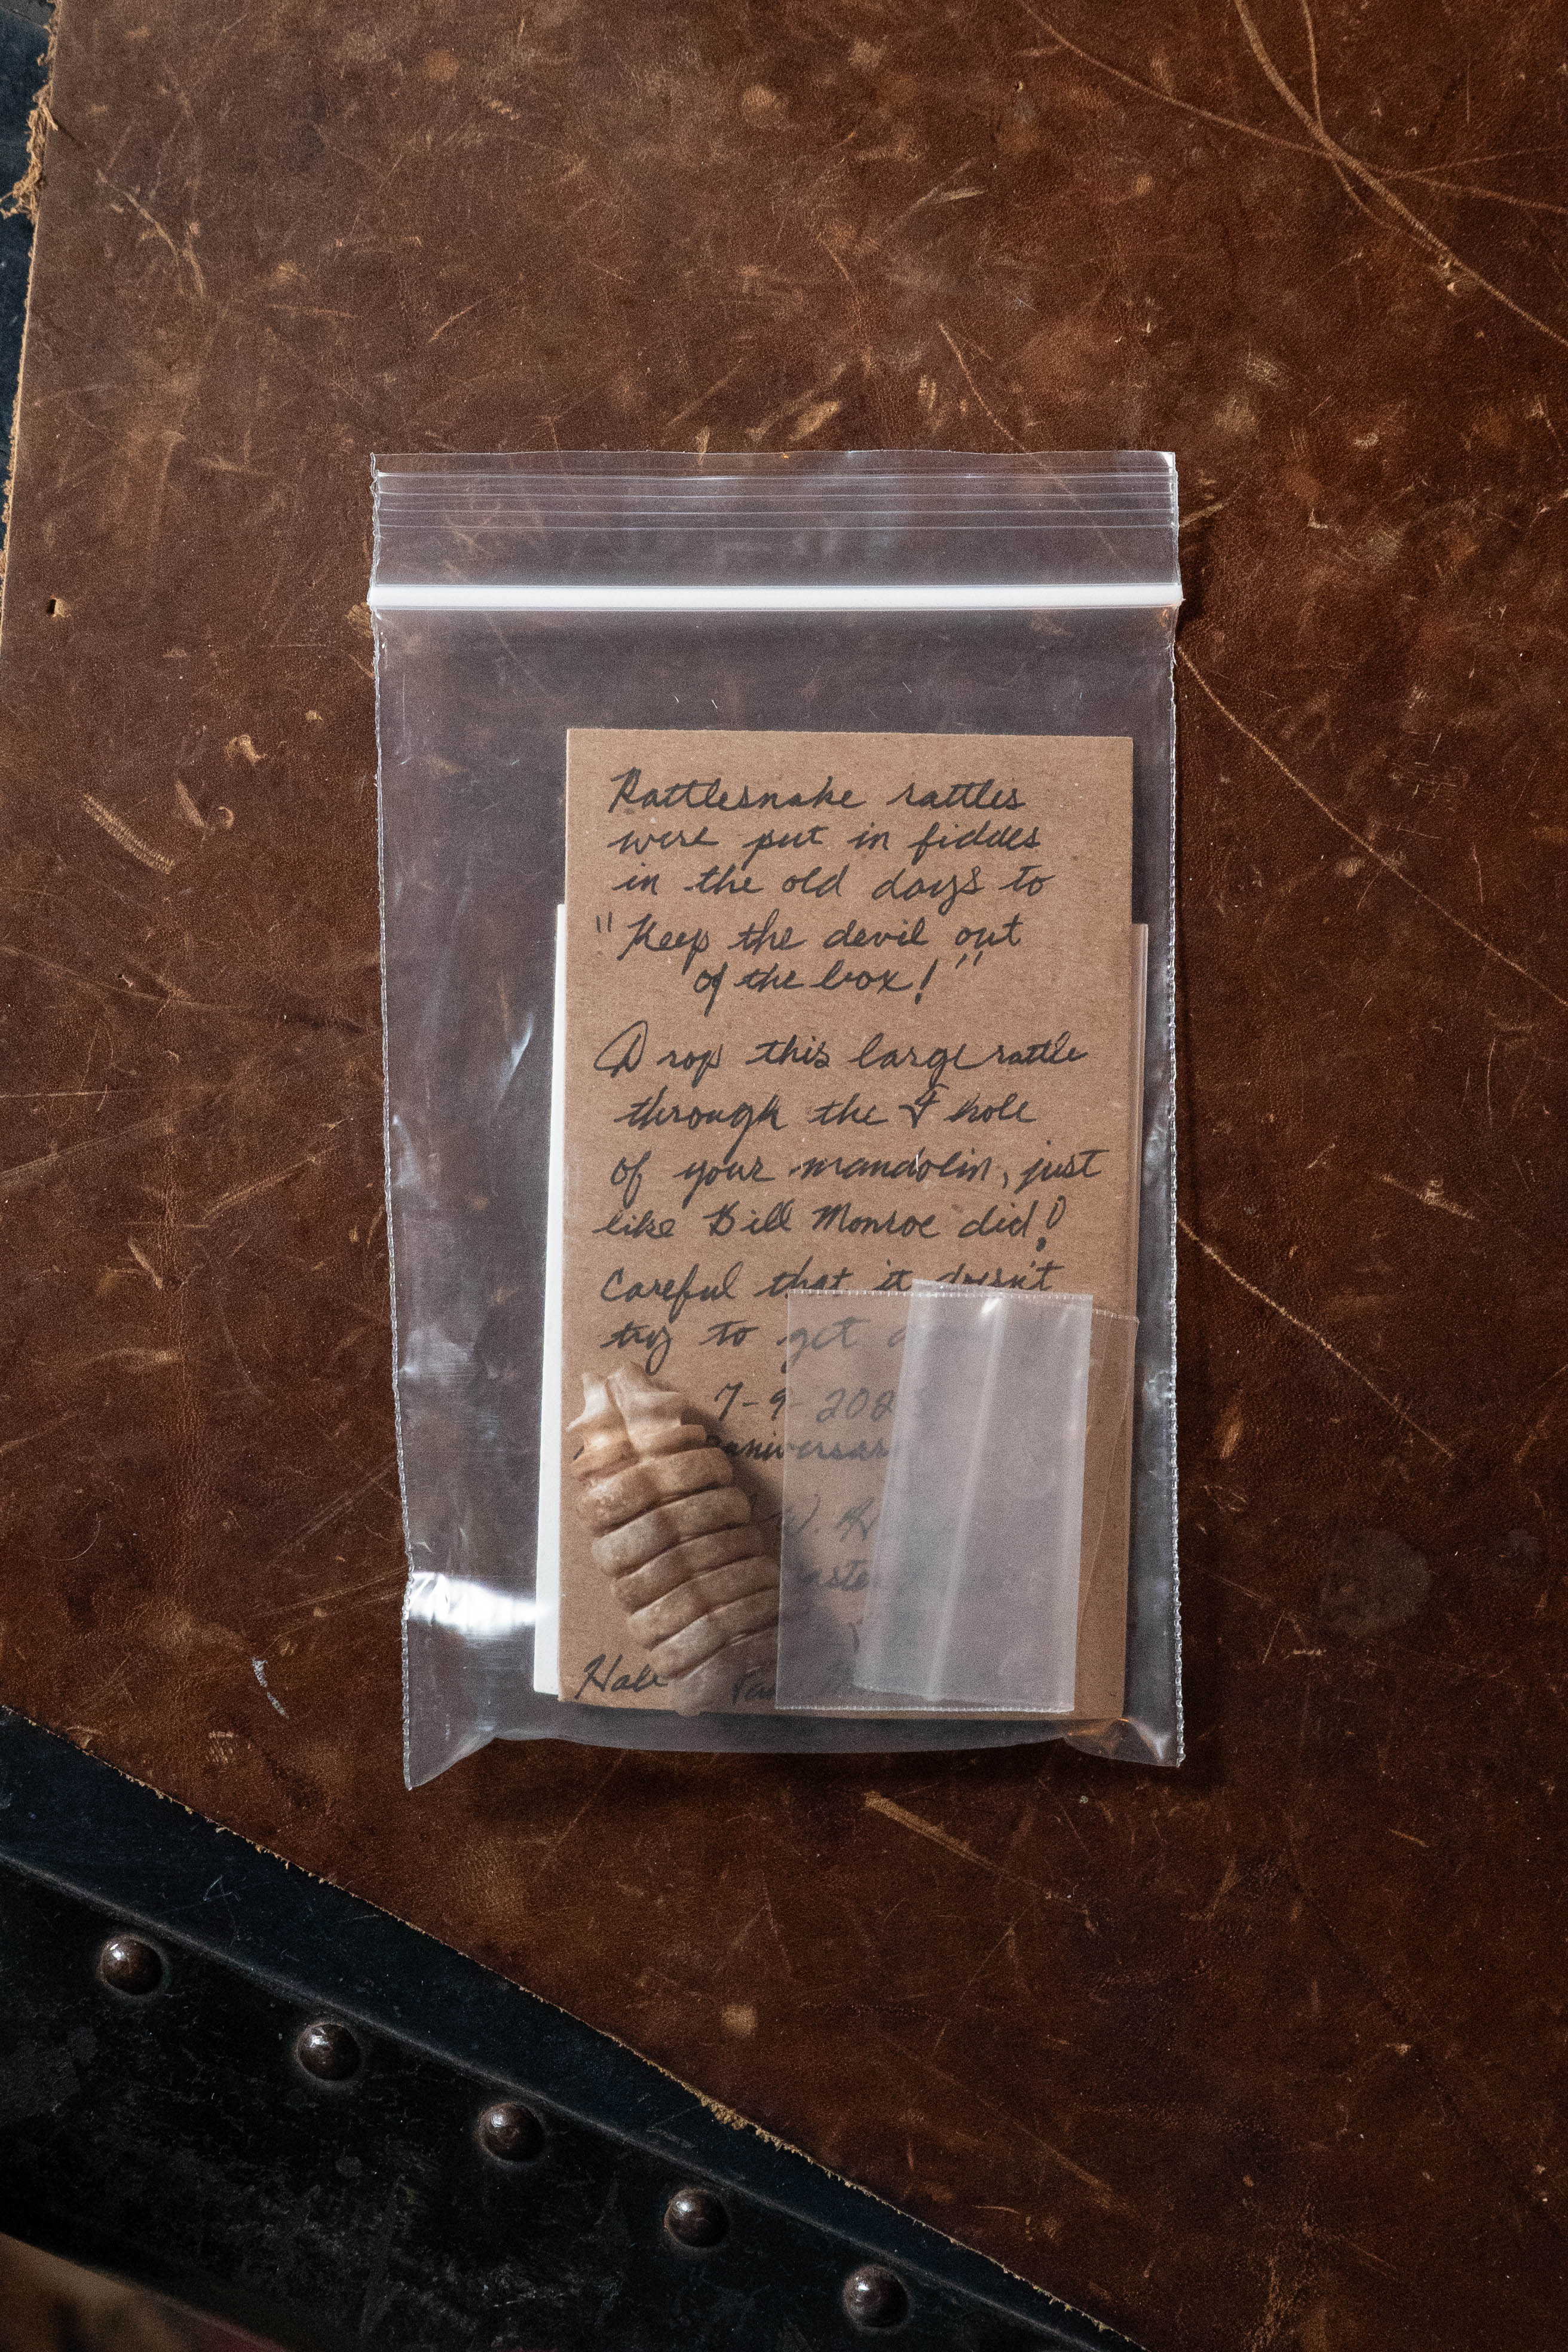 Rattlesnake rattles
were put in fiddles
in the old days to
"Keep the devil out
of the box!"
Drop this large rattle
through the F hole
of your mandolin, just
like Bill Monroe did!
Careful that it doesn't
try to get
7-9-202
anniversar
W.
Hale